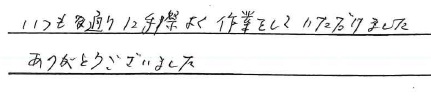 いつも通りに手際よく作業をしていただけました
ありがとうございました